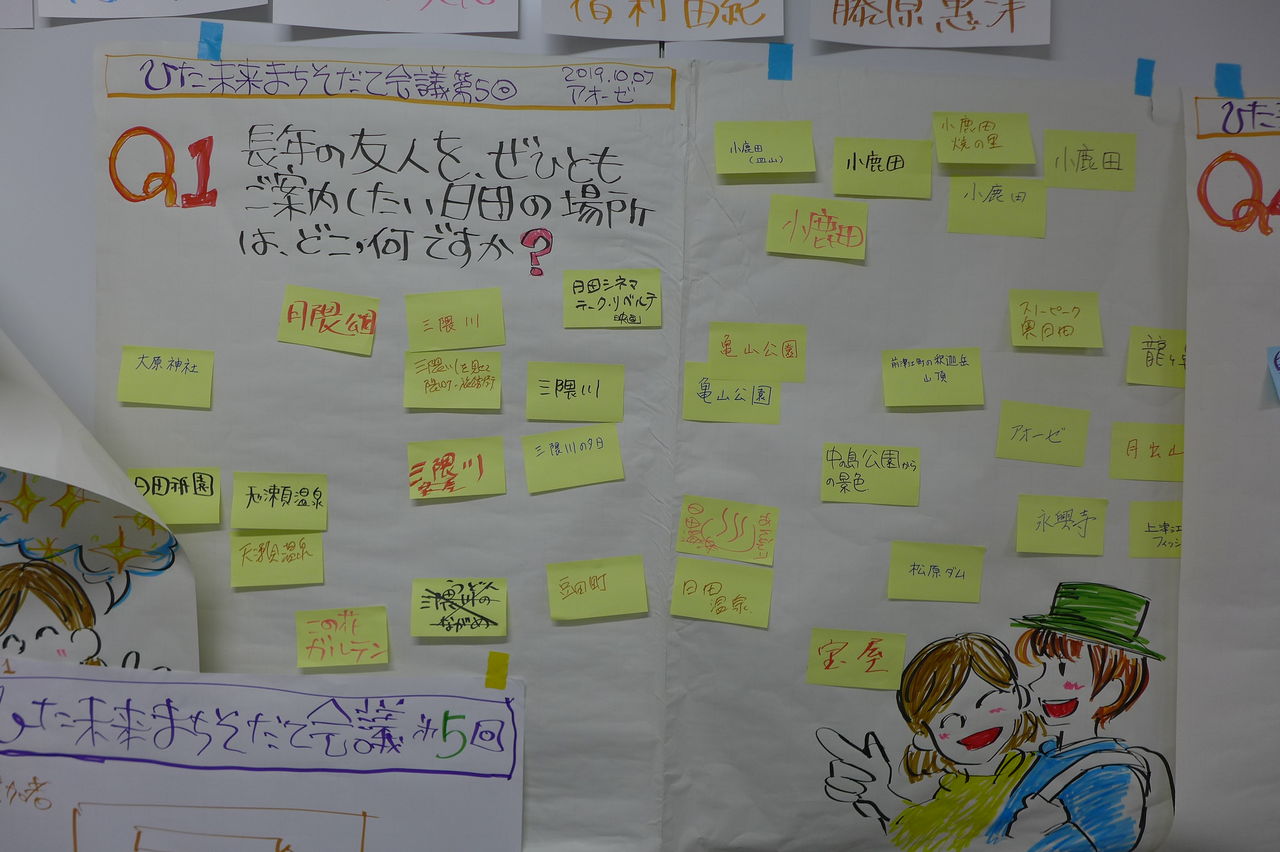 宿利由紀
藤原恵洋
ひた未来まちそだて会議第5回
2019.10.07
アオーゼ
Q1
長年の友人を、ぜひとも
ご案内したい日田の場所
は、どこ、何ですか?
小鹿田
(皿山)
小鹿田
小鹿田
焼の里
小鹿田
小鹿田
小鹿田
日隈公園
三隈川
日田シネマ
テーク・リベルテ
映画
大原神社
三隈川
亀山公園
亀山公園
前津江町の釈迦岳
山頂
奥日田
アオーゼ
月出山
三隈川
宝屋
三隈川の夕日
中の島公園から
の景色
日田祇園
天ヶ瀬温泉
天ヶ瀬温泉
日田温泉
永興寺
上津江
フィッシ
うどん
三隈川の
ながめ
豆田町
日田
温泉
松原ダム
この花
ガルテン
宝屋
ひた未来まちそだて会議 5回